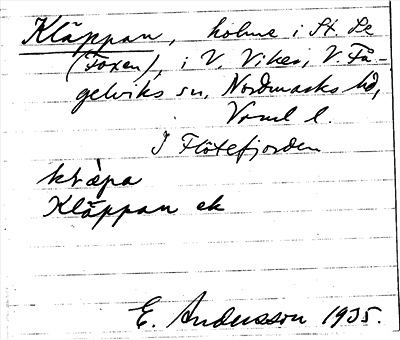 Kläppan, holme i St. Le
(Foxen), i V. Viker, V. Få-
gelviks sn, Nordmarks hd,
Vrml l.
I Flötefjorden
klæ̀pa
Kläppan ek
E. Andersson 1935.